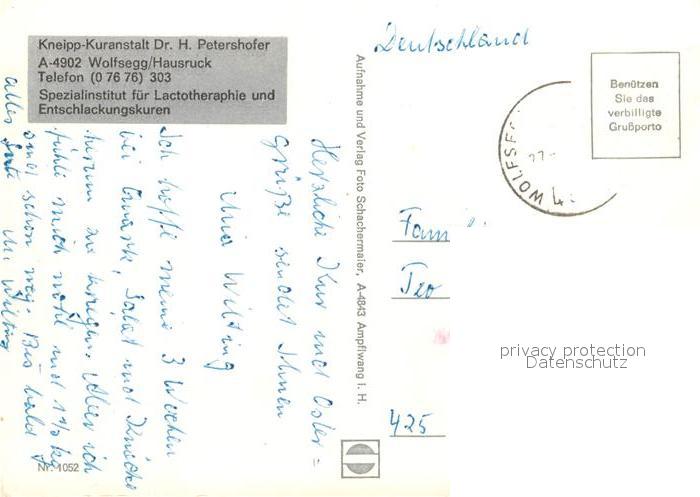 Kneipp-Kuranstalt Dr. H. Petershofer
A-4902 Wolfsegg/Hausruck
Telefon (0 76 76) 303
Spezialinstitut für Lactotheraphie und
Entschlackungskuren
Herzliche Kur und Oster=
grüße sendet Ihnen
Ihr Wilting
Ich hoffe meine 3 Wochen
bei Quark, Salat und Knäcke
herum zu kriegen. Aber ich
fühle mich wohl und 1½ kg
sind schon weg. Bis bald
alles Gute
Nr. 1052
Aufnahme und Verlag Foto Schachermaier, A-4843 Ampflwang i. H.
Deutschland
Benützen
Sie das
verbilligte
Grußporto
WOLFSE
Fam
Teo
425
privacy protection
Datenschutz